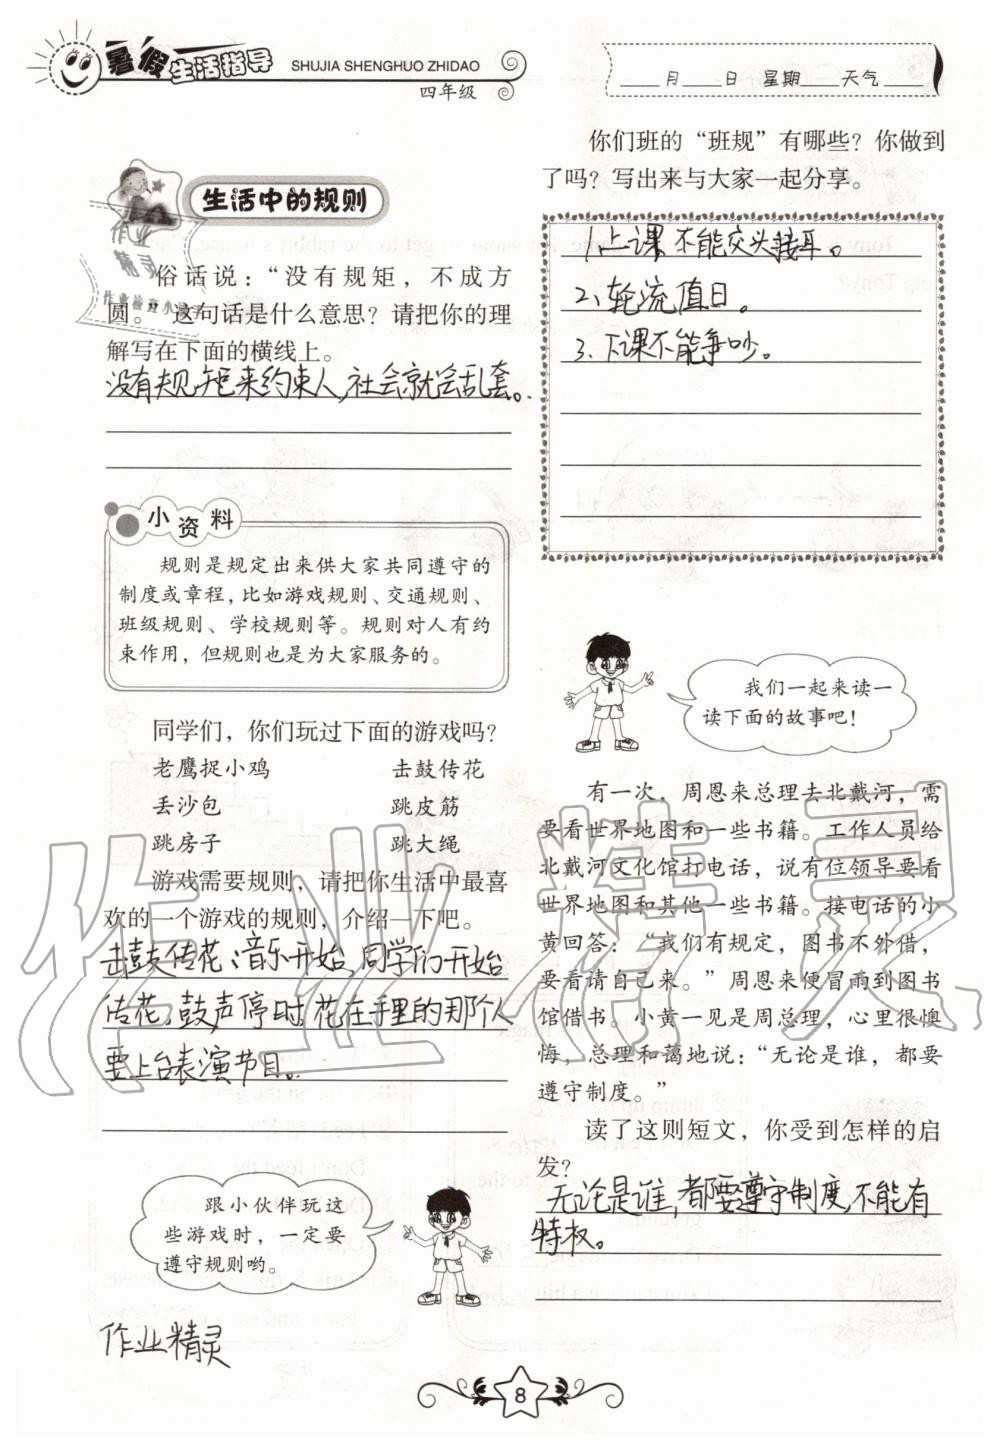 暑假生活指导
SHUJIA SHENGHUO ZHIDAO
四年级
____月____日 星期____天气____
生活中的规则
俗话说：“没有规矩，不成方
圆。”这句话是什么意思？请把你的理
解写在下面的横线上。
没有规矩来约束人,社会就会乱套。
小资料
规则是规定出来供大家共同遵守的
制度或章程，比如游戏规则、交通规则、
班级规则、学校规则等。规则对人有约
束作用，但规则也是为大家服务的。
同学们，你们玩过下面的游戏吗？
老鹰捉小鸡 击鼓传花
丢沙包 跳皮筋
跳房子 跳大绳
游戏需要规则，请把你生活中最喜
欢的一个游戏的规则，介绍一下吧。
击鼓传花:音乐开始,同学们开始
传花,鼓声停时,花在手里的那个人
要上台表演节目。
跟小伙伴玩这
些游戏时，一定要
遵守规则哟。
作业精灵
你们班的“班规”有哪些？你做到
了吗？写出来与大家一起分享。
1、上课不能交头接耳。
2、轮流值日。
3、下课不能争吵。
我们一起来读一
读下面的故事吧！
有一次，周恩来总理去北戴河，需
要看世界地图和一些书籍。工作人员给
北戴河文化馆打电话，说有位领导要看
世界地图和其他一些书籍。接电话的小
黄回答：“我们有规定，图书不外借，
要看请自己来。”周恩来便冒雨到图书
馆借书。小黄一见是周总理，心里很懊
悔，总理和蔼地说：“无论是谁，都要
遵守制度。”
读了这则短文，你受到怎样的启
发？
无论是谁,都要遵守制度,不能有
特权。
8
作业精灵
作业
精灵
作业检查小助手